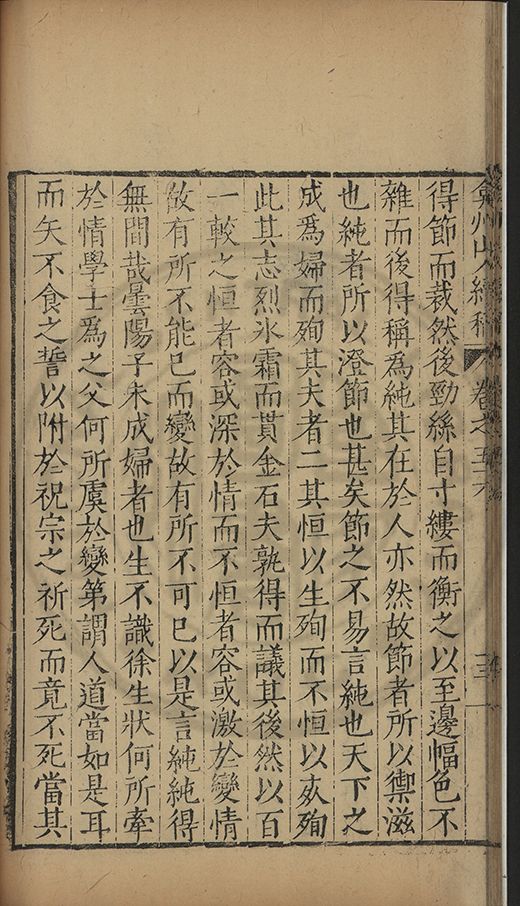 弇州山人續稿 卷之五十六 三
得節而裁然後勁絲自寸縷而衡之以至邊幅色不
雜而後得稱為純其在於人亦然故節者所以禦滋
也純者所以澄節也甚矣節之不易言純也天下之
成為婦而殉其夫者二其恒以生殉而不恒以死殉
此其志烈氷霜而貫金石夫孰得而議其後然以百
一較之恒者容或深於情而不恒者容或激於變情
故有所不能已而變故有所不可已以是言純純得
無間哉曇陽子未成婦者也生不識徐生狀何所牽
於情學士為之父何所虞於變第謂人道當如是耳
而矢不食之誓以附於祝宗之祈死而竟不死當其